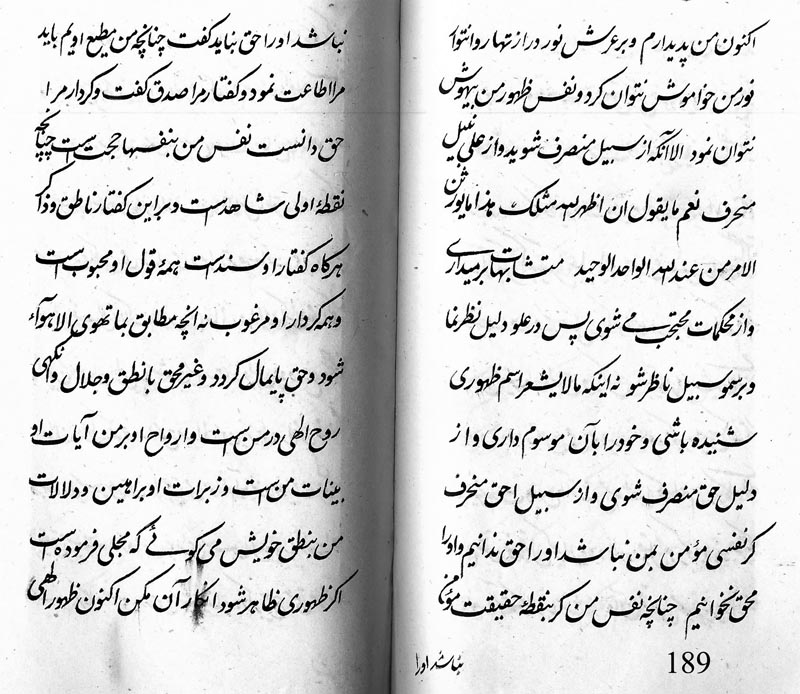 اکنون من پدیدارم و بر عرش نور در از تنها روا نتوا
نور من خواموش نتوان کرد و نفس ظهور من بیهوش
نتوان نمود الا آنکه از سبیل منصرف شوید و از علی نبیل
منحرف نعم ما یقول ان اظهر الله مثلک هذا ما یورثن
الامر من عند الله الواحد الوحید متشابهات بر میداری
و از محکمات محتجب می شوی پس در علو دلیل نظر نما
و بر سمو سبیل ناظر شو نه اینکه مالا یشعر اسم ظهوری
شنیده باشی و خود را بآن موسوم داری و از
دلیل حق منصرف شوی و از سبیل احق منحرف
کر نفسی مؤمن بمن نباشد او را حق ندانیم و او را
محق نخوانیم چنانچه نفس من کر بنقطهٔ حقیقت مؤمن
نباشد اورا
189
نباشد او را حق نباید کفت چنانچه من مطیع اویم باید
مرا اطاعت نمود و کفتار مرا صدق کفت و کردار مرا
حق دانست نفس من بنفسها حجت است چنانچه
نقطهٔ اولی شاهد است و بر این کفتار ناطق و ذاکر
هر کاه کفتار او سند است همهٔ قول او محبوب است
و همه کردار او مرغوب نه انچه مطابق بما تهوی الاهواء
شود و حق پایمال کردد و غیر محق با نطق و جلال وانکهی
روح الهی در من است و ارواح او بر من آیات او
بینات من است و زبرات او براهین و دلالات
من بنطق خویش می کوئی که مجلی فرموده است
اکر ظهوری ظاهر شود انکار آن مکن اکنون ظهور الهی